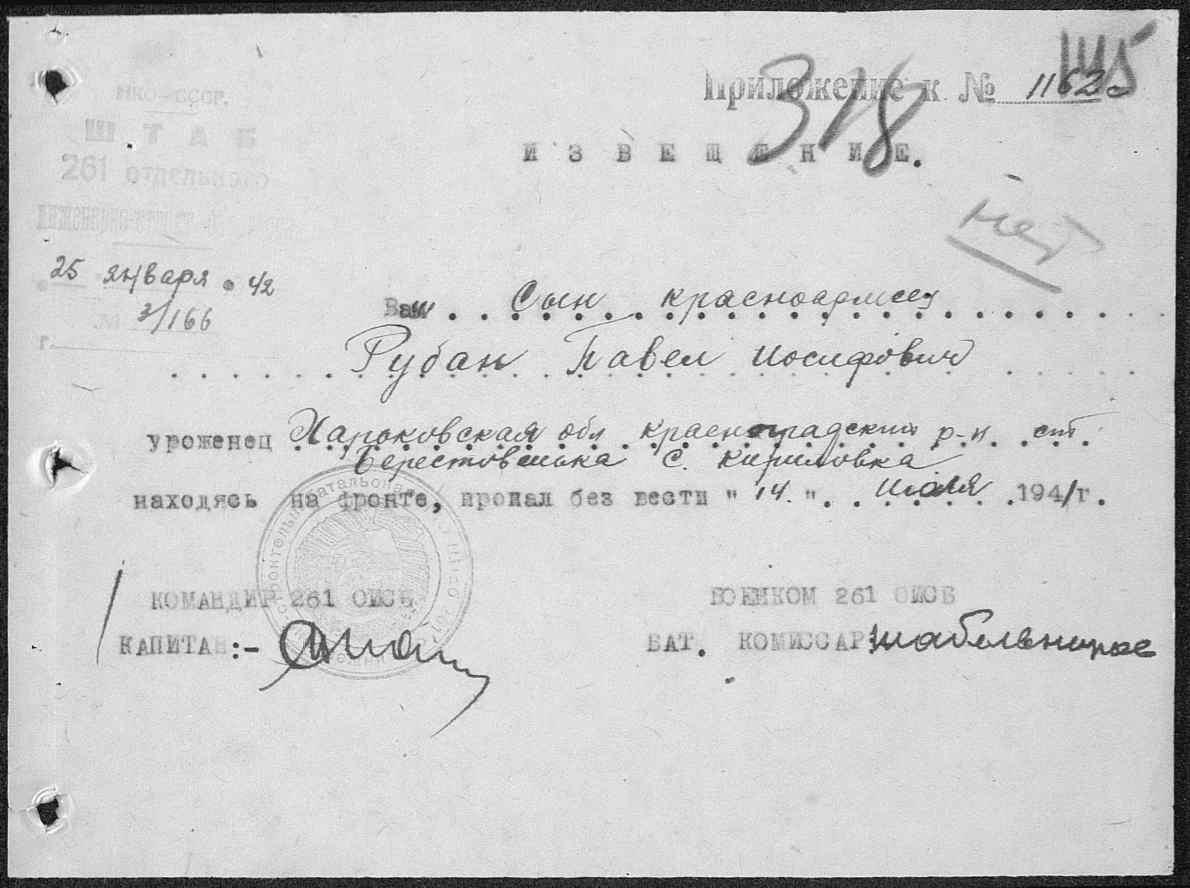 1115
318
Приложение к № 11623
НКО-СССР.
ШТАБ
261 отдельного
ИЗВЕЩЕНИЕ.
нет
25 января 42
№ 3/166
г.
Ваш сын красноармеец
Рубан Павел Иосифович
уроженец Харьковская обл красноградский р-н. ст.
Берестовенька с. Кириловка
находясь на фронте, пропал без вести "14." июля 1941г.
КОМАНДИР 261 ОИСБ
ВОЕНКОМ 261 ОИСБ
КАПИТАН:-
БАТ. КОМИССАР